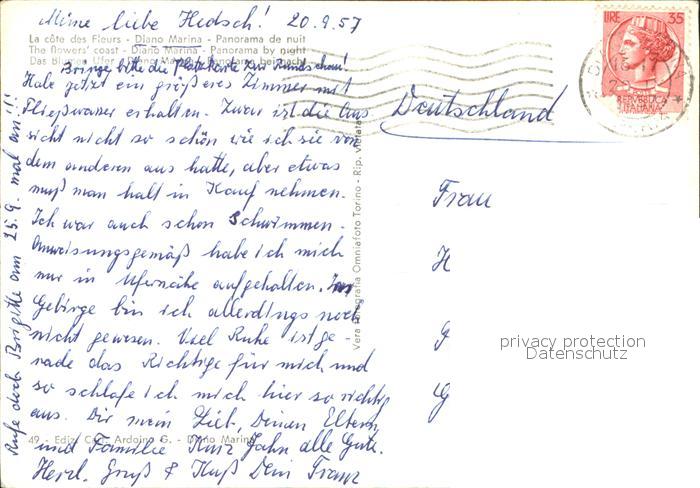 Meine liebe Hedsch! 20.9.57
La côte des Fleurs - Diano Marina - Panorama de nuit
The flowers' coast - Diano Marina - Panorama by night
Das Blumen Ufer - Diano Marina - Panorama bei nacht
Bringe bitte die Platzkarte zur Rundschau!
Habe jetzt ein größeres Zimmer mit
Fließwasser erhalten. Zwar ist die Aus-
sicht nicht so schön wie ich sie von
dem anderen aus hatte, aber etwas
muß man halt in Kauf nehmen.
Ich war auch schon Schwimmen.
Anweisungsgemäß habe ich mich
nur in Ufernähe aufgehalten. Im
Gebirge bin ich allerdings noch
nicht gewesen. Viel Ruhe ist ge-
rade das Richtige für mich und
so schlafe ich mich hier so richtig
aus. Dir mein Lieb, Deinen Eltern
49 - Ediz. Cart. Ardoino G. - Diano Marina
und Familie Kurz Jahn alle Gute.
Herzl. Gruß & Kuß Dein Franz
Rufe doch Brigitte am 25.9. mal an!!!
Vera Fotografia Omniafoto Torino - Rip. vietata
LIRE 35
REPVBBLICA
ITALIANA
Deutschland
Frau
H
G
privacy protection
Datenschutz